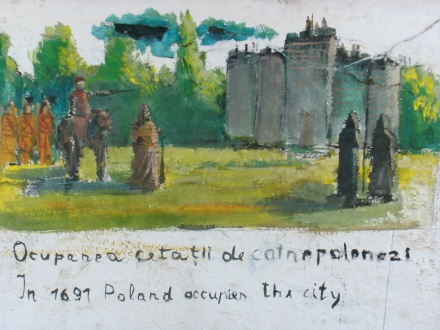 Ocuparea cetații de catre polonezi
In 1691 Poland occupies the city